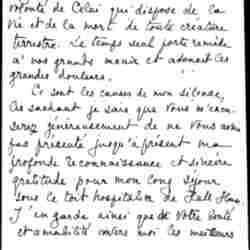 volonté de Celui qui dispose de la
vie et de la mort de toute créature
terrestre. Le temps seul porte remède
à nos grands maux et adoucit les
grandes douleurs.
Ce sont les causes de mon silence,
les sachant je sais que vous m'excu-
serez généreusement de ne vous avoir
pas présenté jusqu'à présent ma
profonde reconnaissance et sincère
gratitude pour mon long séjour
sous le toit hospitalier de Hall
J'en garde ainsi que de Votre bonté
et amabilité envers moi les meilleurs